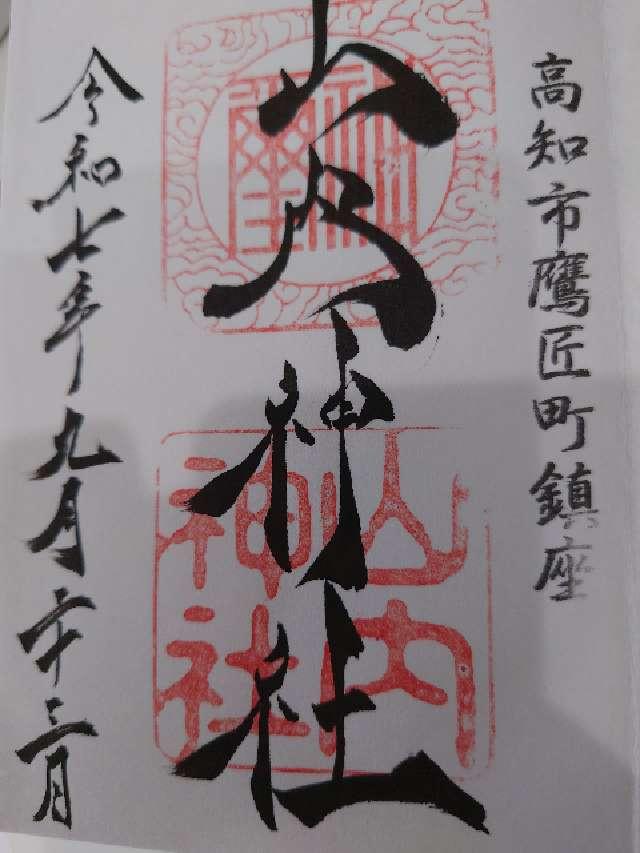 高知市鷹匠町鎮座
山内神社
山内
神社
令和七年九月二十三日